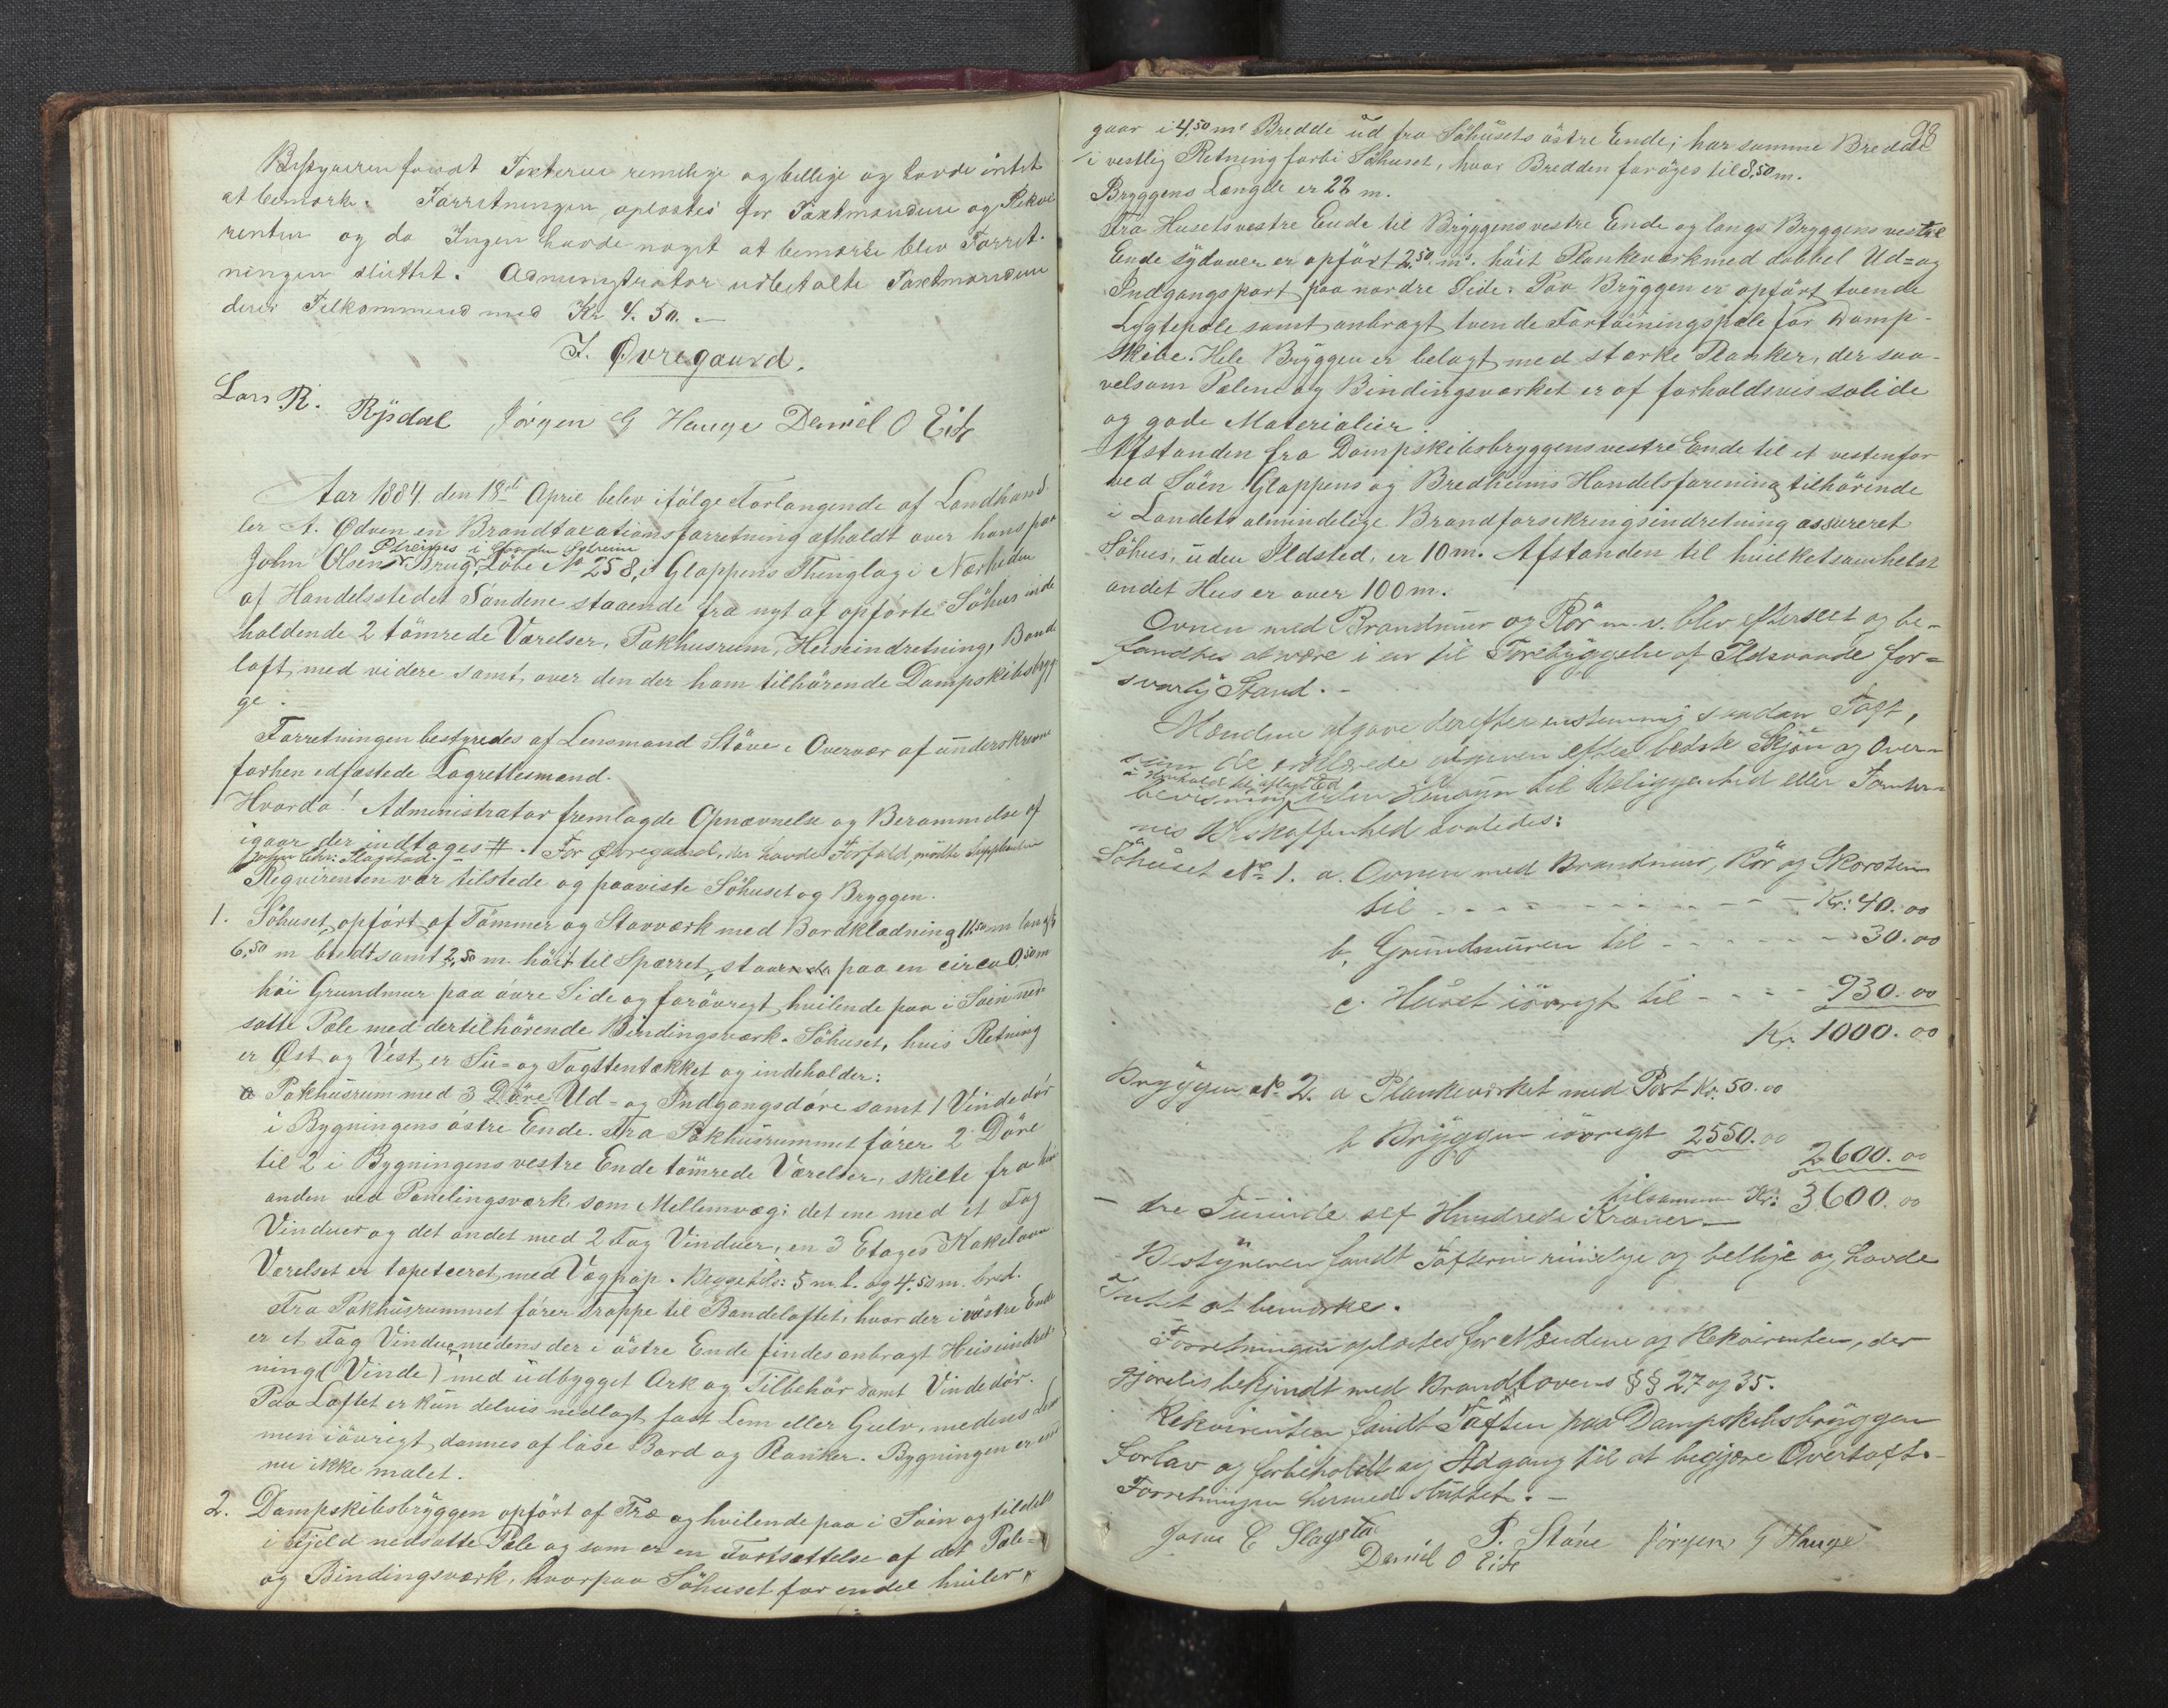 Bestyreren fandt Taxterne rimelige og billige og havde intet
at bemærke. Forretningen oplæstes for Taxtmændene og Rekvi
renten og da Ingen havde noget at bemærke blev Forret-
ningen sluttet. Administrator udbetalte Taxtmændene
deres Tilkommende med Kr 4.50.
I. Øvregaard.
Lars R. Rysdal Jørgen G Hauge Daniel O Eide
Aar 1884 den 18de April belev ifølge Forlangende af Landhand
ler A. Ødven en Brandtaxationsforretning afholdt over hans paa
John Olsen Brug, Löbe No 258, i Gloppens Thinglag i Nærheden
af Handelsstedet Sandene staaende fra nyt af opførte Söhus inde
holdende 2 tömrede Værelser, Pakhusrum, Heiseindretning, Bande
loft med videre samt over den der ham tilhörende Dampskibsbryg
ge.
Forretningen bestyredes af Lensmand Støve i Overvær af underskrevne
forhen edfæstede Lagrettesmænd.
Hvorda! Administrator fremlagde Opnævnelse og Berammelse af
igaar der indtages #. For Øvregaard, der havde Forfald, mødte Suppleanten
Reqvirenten var tilstede og paaviste Söhuset og Bryggen.
1. Söhuset, opført af Tömmer og Stavværk med Bordklædning 11.50 m langt
6.50 m bredt samt 2.50 m. höit til Sparret, staaende paa en circa 0.50 m
höi Grundmur paa övre Side og forövrigt hvilende paa i Söen ned-
satte Pæle med dertilhörende Bindingsværk. Söhuset, hvis Retning
er Øst og Vest, er Su- og Tagstentækket og indeholder:
a Pakhusrum med 3 Döre Ud- og Indgangsdöre samt 1 Vindedör
i Bygningens östre Ende. Fra Pakhusrummet förer 2 Döre
til 2 i Bygningens vestre Ende tömrede Værelser, skilte fra hin
anden ved Panelingsværk som Mellemvæg; det ene med et Fag
Vinduer og det andet med 2 Fag Vinduer, en 3 Etages Kakelovn
Værelset er tapetceret med Vægpap. 5 m. l. og 4.50 m. bred.
Fra Pakhusrummet förer Trappe til Bandeloftet, hvor der i vestre Ende
er et Fag Vinduer medens der i östre Ende findes anbragt Heiseindret-
ning (Vinde) med udbygget Ark og Tilbehör samt Vindedör.
Paa Loftet er kun delvis nedlagt fast Lem eller Gulv, medens Lem
men iövrigt dannes af löse Bord og Planker. Bygningen er end
nu ikke malet.
2. Dampskibsbryggen opført af Træ og hvilende paa i Söen og tildels
i Fjeld nedsatte Pæle og som er en Fortsættelse af det Pæle-
og Bindingsværk, hvorpaa Söhuset for endel hviler,
98
gaar i 4.50 m's Bredde ud fra Söhusets östre Ende; har samme Bredde
i vestlig Retning forbi Söhuset, hvor Bredden forøges til 8.50 m.
Bryggens Længde er 22 m.
Fra Husets vestre Ende til Bryggens vestre Ende og langs Bryggens vestre
Ende sydover er opført 2.50 m's höit Plankeværk med dobbel Ud- og
Indgangsport paa nordre Side. Paa Bryggen er opført tvende
Lygtepæle samt anbragt tvende Fortöiningspæle for Damp-
skibe. Hele Bryggen er belagt med stærke Planker, der saa-
velsom Pælene og Bindingsværket er af forholdsvis solide
og gode Materialier.
Afstanden fra Dampskibsbryggens vestre Ende til et vestenfor
ved Söen Gloppens og Bredheims Handelsforening tilhörende
i Landets almindelige Brandforsikringsindretning assureret
Söhus, uden Ildsted, er 10 m. Afstanden til hvilketsomhelst
andet Hus er over 100 m.
Ovnen med Brandmur og Rör m. v. blev efterseet og be-
fandtes at være i en til Forebyggelse af Ildsvaade for-
svarlig Stand.
Mændene afgave derefter enstemmig saadan Taxt,
som de erklærede afgiven efter bedste Skjön og Over-
i Henhold til aflagt Ed
bevisning uden Hensyn til Beliggenhed eller
Beskaffenhed saaledes:
Söhuset No 1. a. Ovnen med Brandmur, Rör og Skorsten
til - - - Kr: 40.00
b. Grundmuren til - - - 30.00
c. Huset iövrigt til - - - 930.00
Kr. 1000.00
Bryggen No 2. a Plankeværket med Port Kr. 50.00
b Bryggen iövrigt 2550.00
2600.00
tilsammen Kr: 3600.00
- tre Tusinde sex Hundrede Kroner. -
Bestyreren fandt Taxterne rimelige og billige og havde
Intet at bemærke.
Forretningen oplæstes for Mændene og Rekvirenten, der
gjordes bekjendt med Brandlovens §§ 27 og 35.
Rekvirenten fandt Taxten paa Dampskibsbryggen
forlav og forbeholdt sig Adgang til at begjære Overtaxt.
Forretningen hermed sluttet. -
E Slagsta P. Støve Jörgen G Hauge
Daniel O Eide